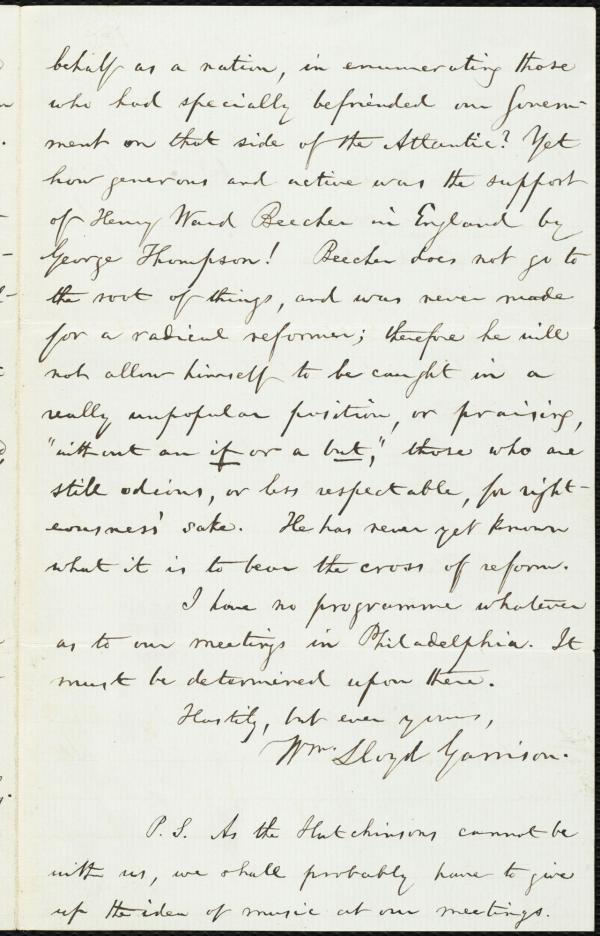 behalf as a nation, in enumerating those
who had specially befriended our Govern-
ment on that side of the Atlantic? Yet
how generous and active was the support
of Henry Ward Beecher in England by
George Thompson! Beecher does not go to
the root of things, and was never made
for a radical reformer; therefore he will
not allow himself to be caught in a
really unpopular position, or praising,
"without an if or a but," those who are
still odious, or less respectable, for right-
eousness' sake. He has never yet known
what it is to bear the cross of reform.
I have no programme whatever
as to our meetings in Philadelphia. It
must be determined upon there.
Hastily, but ever yours,
Wm. Lloyd Garrison.
P. S. As the Hutchinsons cannot be
with us, we shall probably have to give
up the idea of music at our meetings.